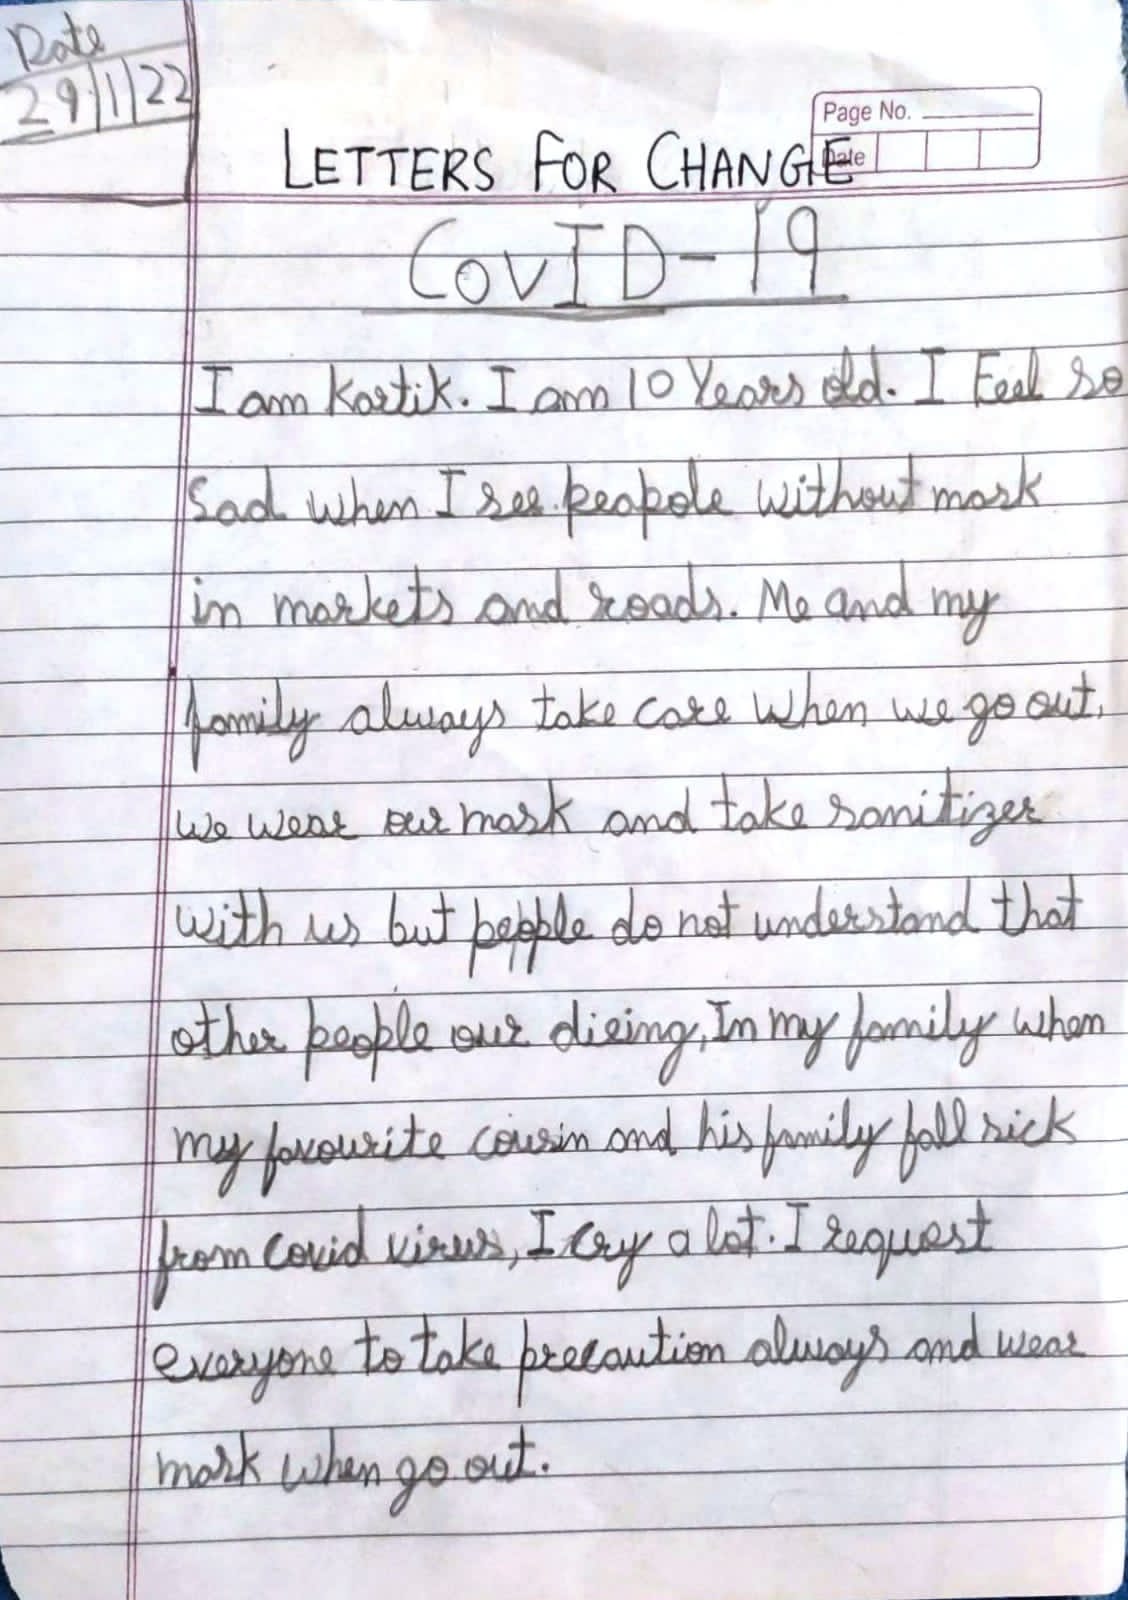 Date
29/1/22
Page No.
Date
LETTERS FOR CHANGE
COVID-19
I am Kartik. I am 10 Years old. I Feel so
Sad when I see peapole without mask
in markets and roads. Me and my
family always take care when we go out.
we wear our mask and take sanitizer
with us but people do not understand that
other people our dieing, In my family when
my favourite cousin and his family fall sick
from covid virus, I cry a lot. I request
everyone to take precaution always and wear
mask when go out.